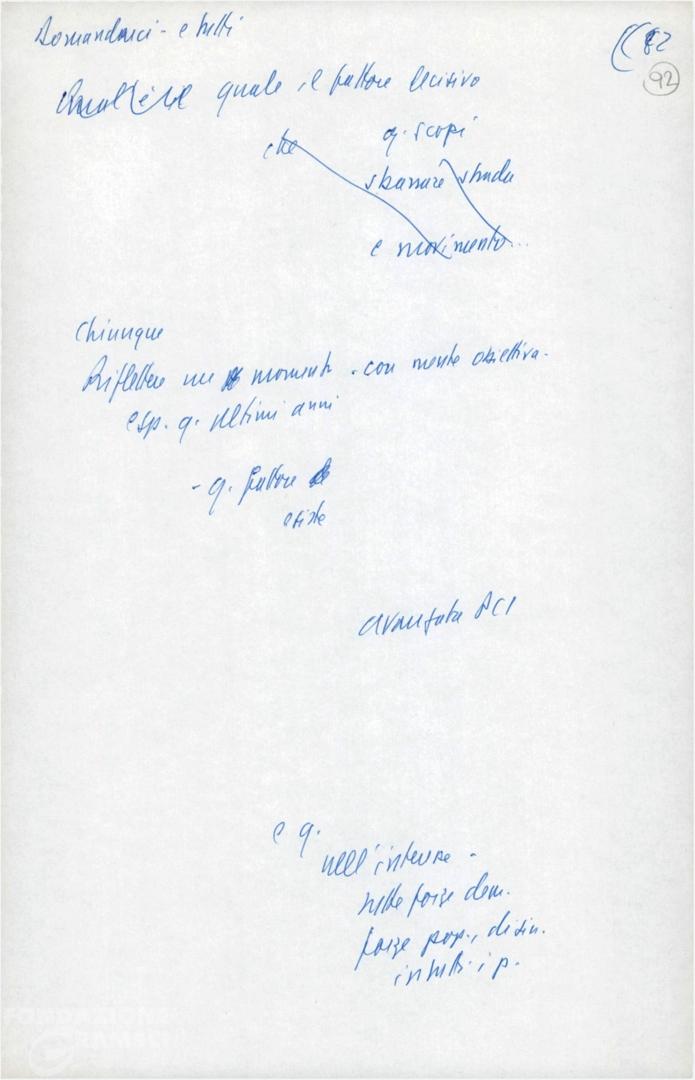 Domandarci - e tutti
82
92
Qual è il quale il fattore decisivo
che
q. scopi
sbarrare strada
e movimento...
Chiunque
Riflettere un momento - con mente obiettiva -
esp. q. ultimi anni
- q. fattore
esiste
avanzata PCI
e q.
nell'interesse -
tutte forze dem.
forze pop., di sin.
in tutti i p.
FONDAZIONE
GRAMSCI